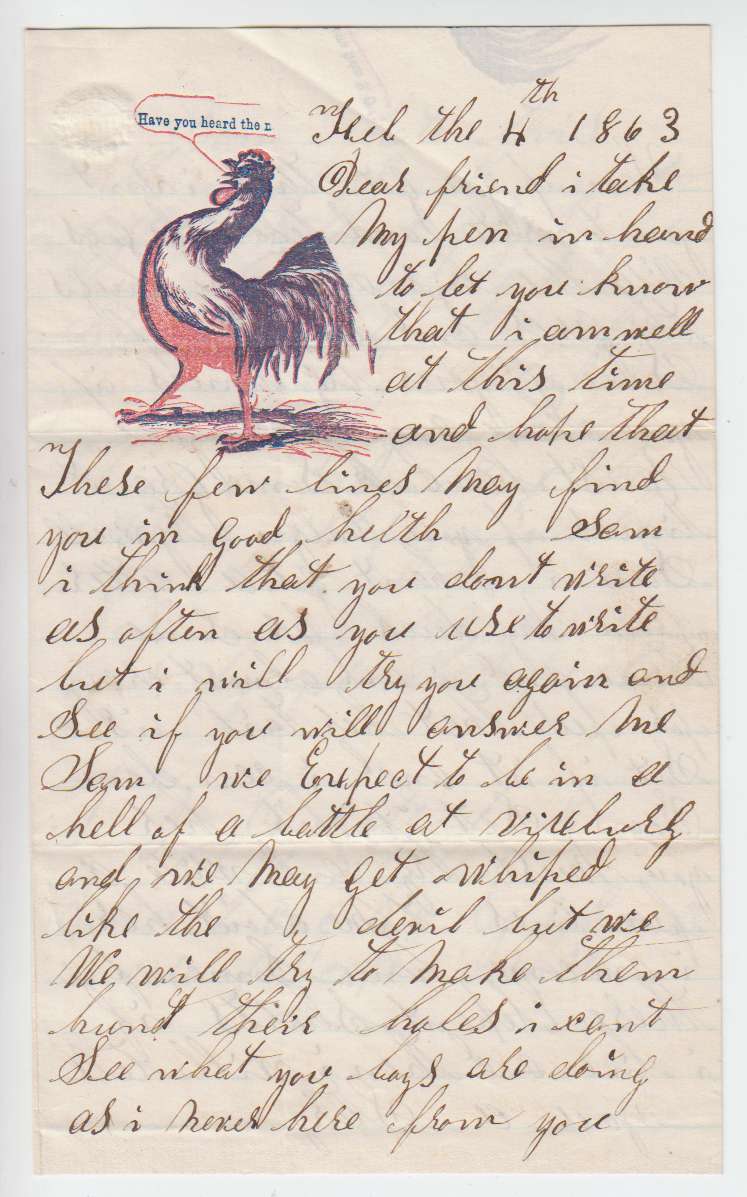 Have you heard the n
Feb the 4th 1863
Dear friend i take
My pen in hand
to let you know
that i am well
at this time
and hope that
These few lines May find
you in good helth Sam
i think that you dont write
as often as you use to write
but i will try you again and
See if you will answer Me
Sam we Expect to be in a
hell of a battle at vixeburg
and we May get whiped
like the devil but we
We will try to Make them
hunt their holes i cant
See what you boys are doing
as i never here from you